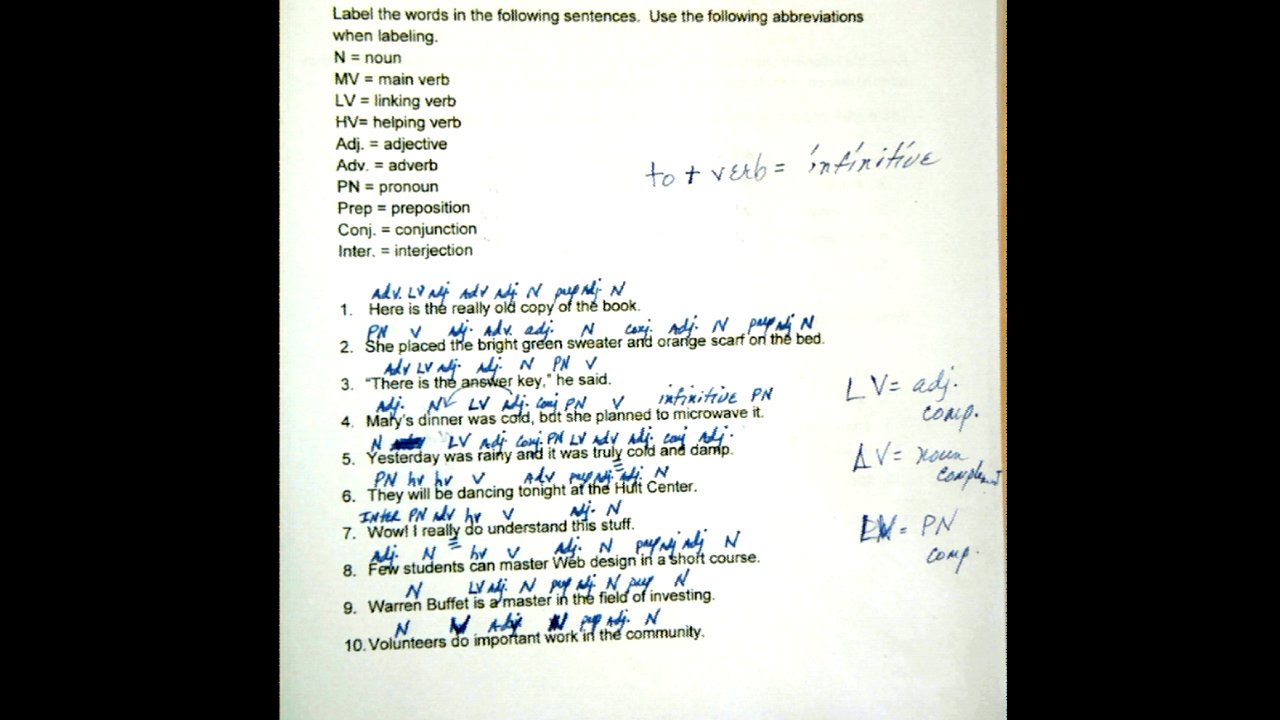 Label the words in the following sentences. Use the following abbreviations
when labeling.
N = noun
MV = main verb
LV = linking verb
HV= helping verb
Adj. = adjective
Adv. = adverb
to + verb = infinitive
PN = pronoun
Prep = preposition
Conj. = conjunction
Inter. = interjection
Adv. LV adj Adv Adj N prep Adj N
1. Here is the really old copy of the book.
PN V Adj. Adv. adj. N conj. Adj. N prep Adj N
2. She placed the bright green sweater and orange scarf on the bed.
Adv LV Adj. Adj. N PN V
3. "There is the answer key," he said.
Adj. N LV Adj. Conj PN V infinitive PN
4. Mary's dinner was cold, but she planned to microwave it.
LV = adj. comp.
N LV Adj Conj. PN LV Adv Adj. conj Adj.
5. Yesterday was rainy and it was truly cold and damp.
LV = noun
PN hv hv V Adv prep Adj. Adj N
6. They will be dancing tonight at the Hult Center.
Inter PN Adv hv V Adj. N
7. Wow! I really do understand this stuff.
LV = PN comp.
Adj. N hv V Adj. N prep Adj Adj N
8. Few students can master Web design in a short course.
N LV Adj. N prep Adj. N prep N
9. Warren Buffet is a master in the field of investing.
N V Adj N prep Adj. N
10. Volunteers do important work in the community.